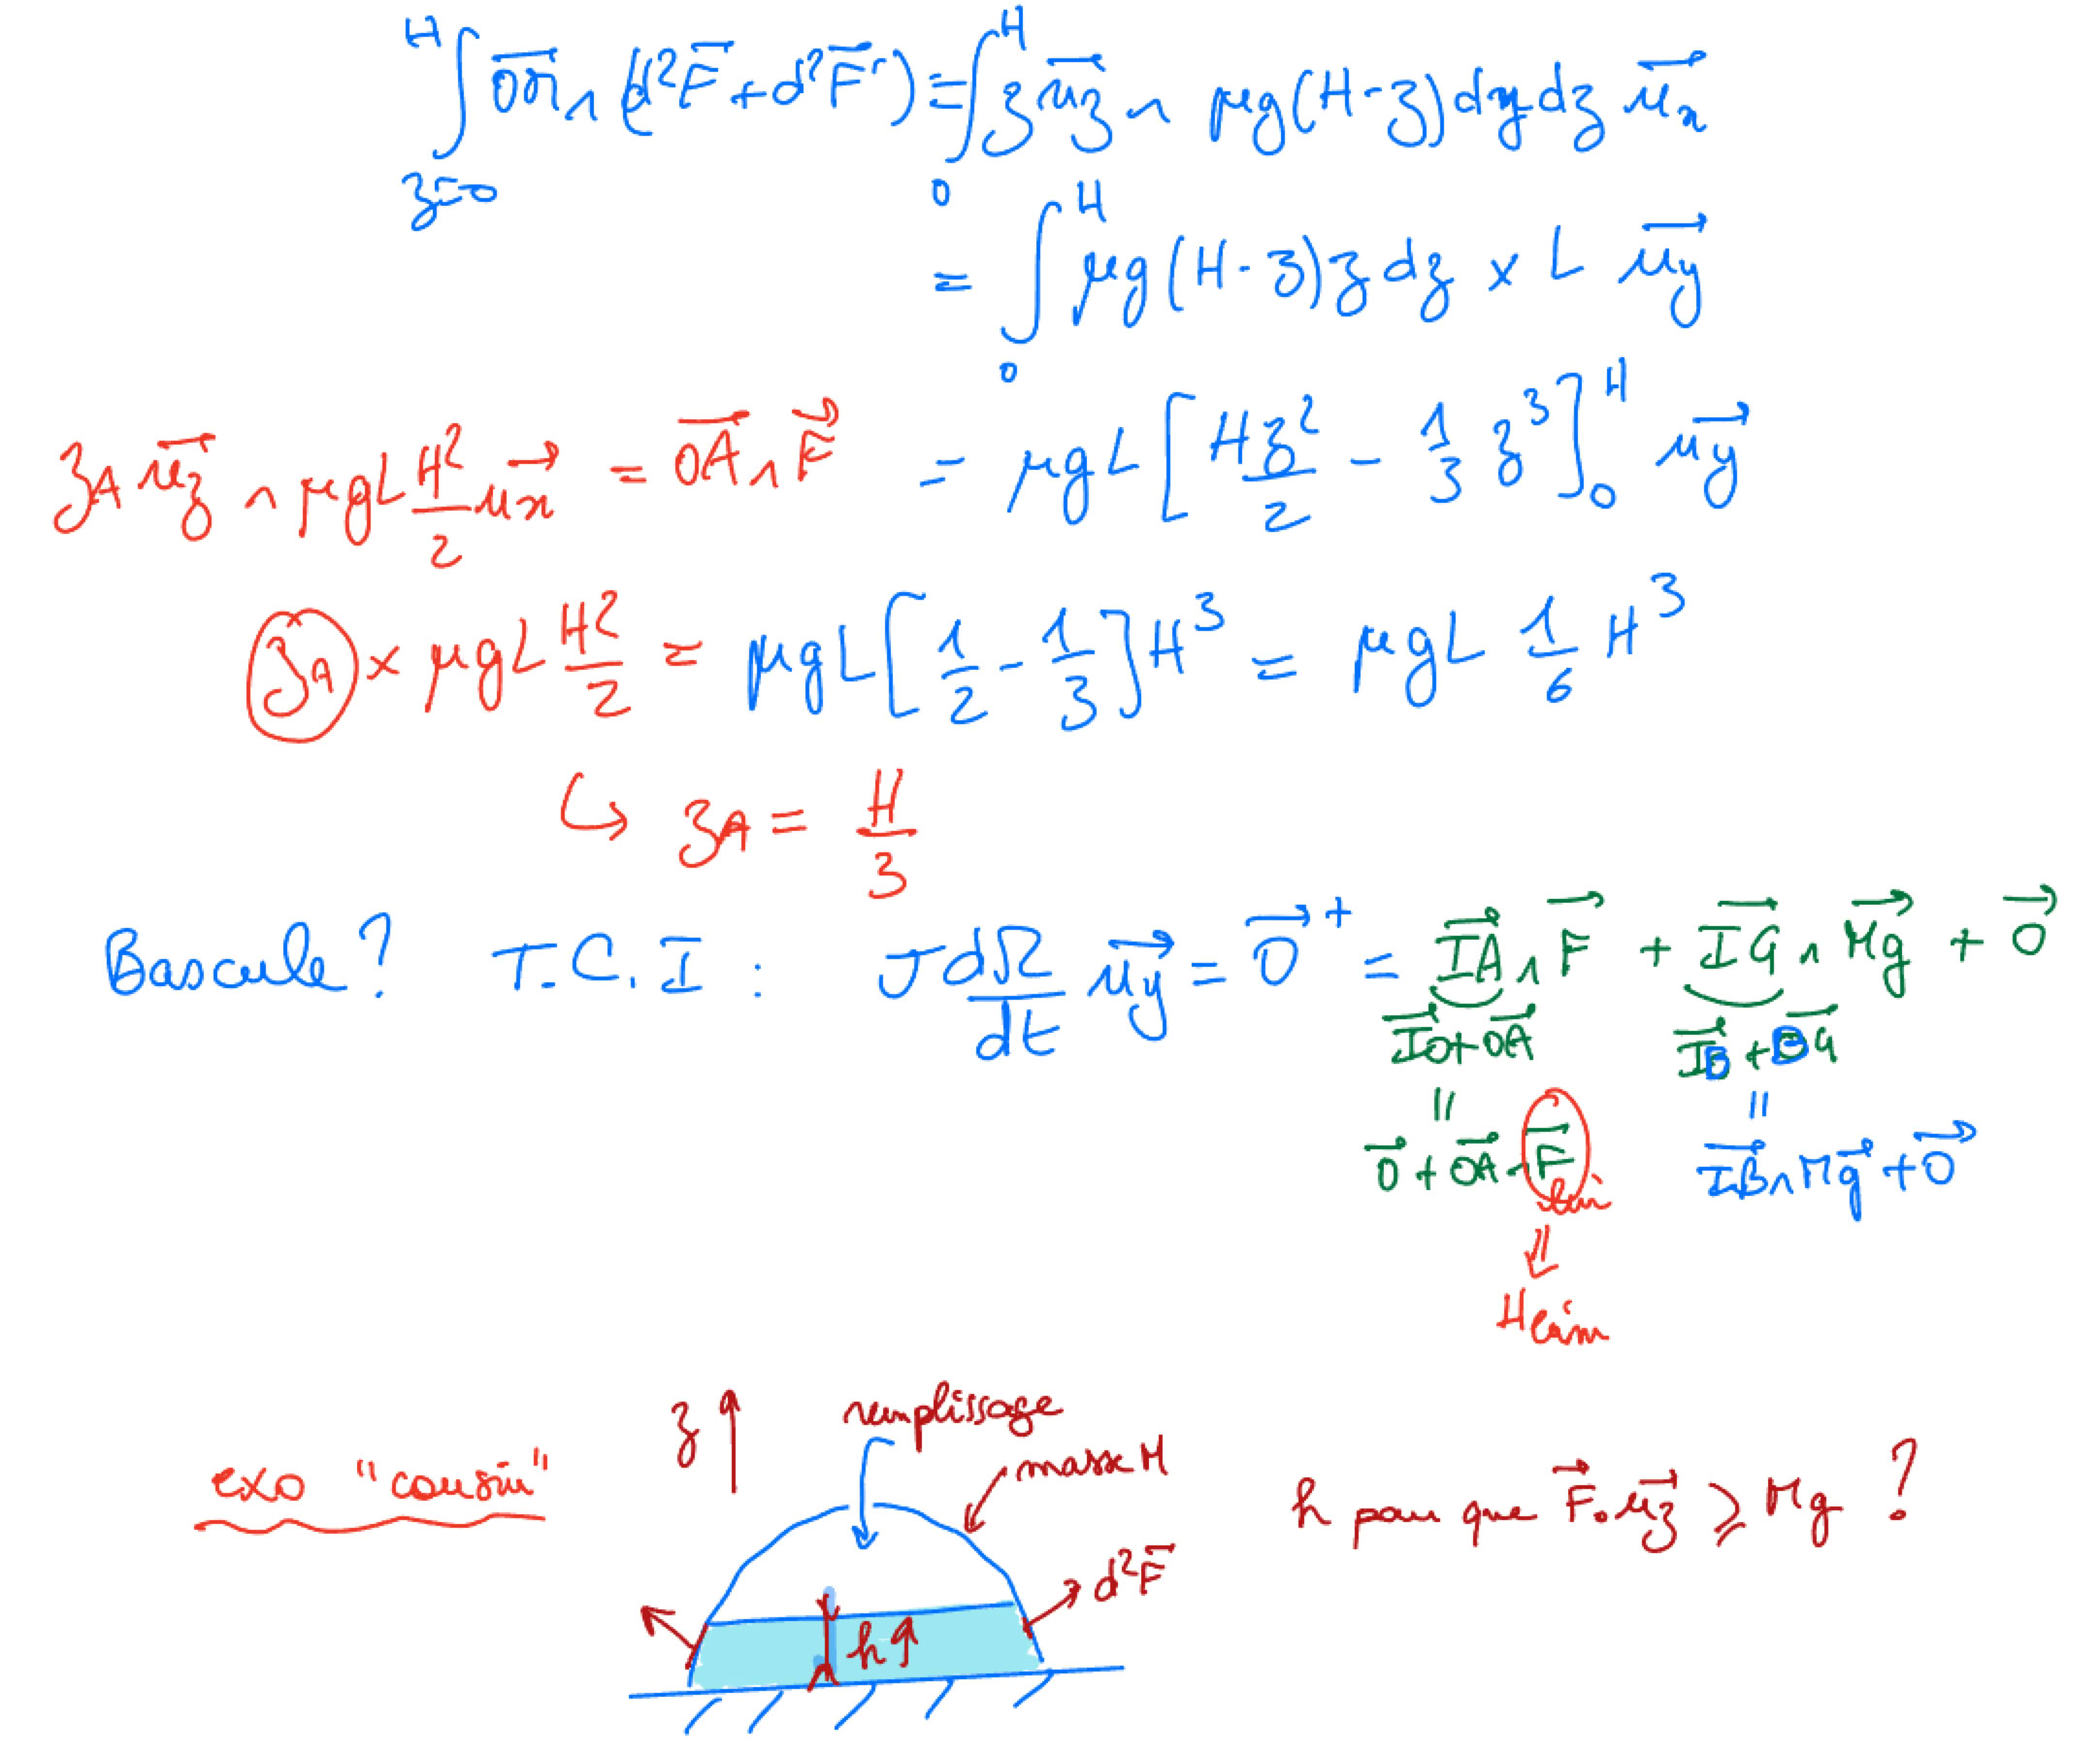 ∫_{z=0}^{H} \vec{OM} ∧ (d²\vec{F} + d²\vec{F}') = ∫_0^H z \vec{u_z} ∧ μg(H-z) dy dz \vec{u_x}
= ∫_0^H μg(H-z) z dz × L \vec{u_y}
z_A \vec{u_z} ∧ μgL \frac{H²}{2} \vec{u_x} = \vec{OA} ∧ \vec{F} = μgL [ \frac{Hz²}{2} - \frac{1}{3} z³ ]_0^H \vec{u_y}
z_A × μgL \frac{H²}{2} = μgL [ \frac{1}{2} - \frac{1}{3} ] H³ = μgL \frac{1}{6} H³
↪ z_A = \frac{H}{3}
Bascule ? T.C.I : J \frac{dΩ}{dt} \vec{u_y} = \vec{0}^+ = \vec{IA} ∧ \vec{F} + \vec{IG} ∧ M\vec{g} + \vec{0}
\vec{IO} + \vec{OA} \vec{IB} + \vec{BG}
= =
\vec{0} + \vec{OA} ∧ \vec{F}_{lim} \vec{IB} ∧ M\vec{g} + \vec{0}
⇓
H lim
z ↑ remplissage
masse M
exo "cousin"
h pour que \vec{F}.\vec{u_z} ⩾ Mg ?
d²\vec{F}
h ↑